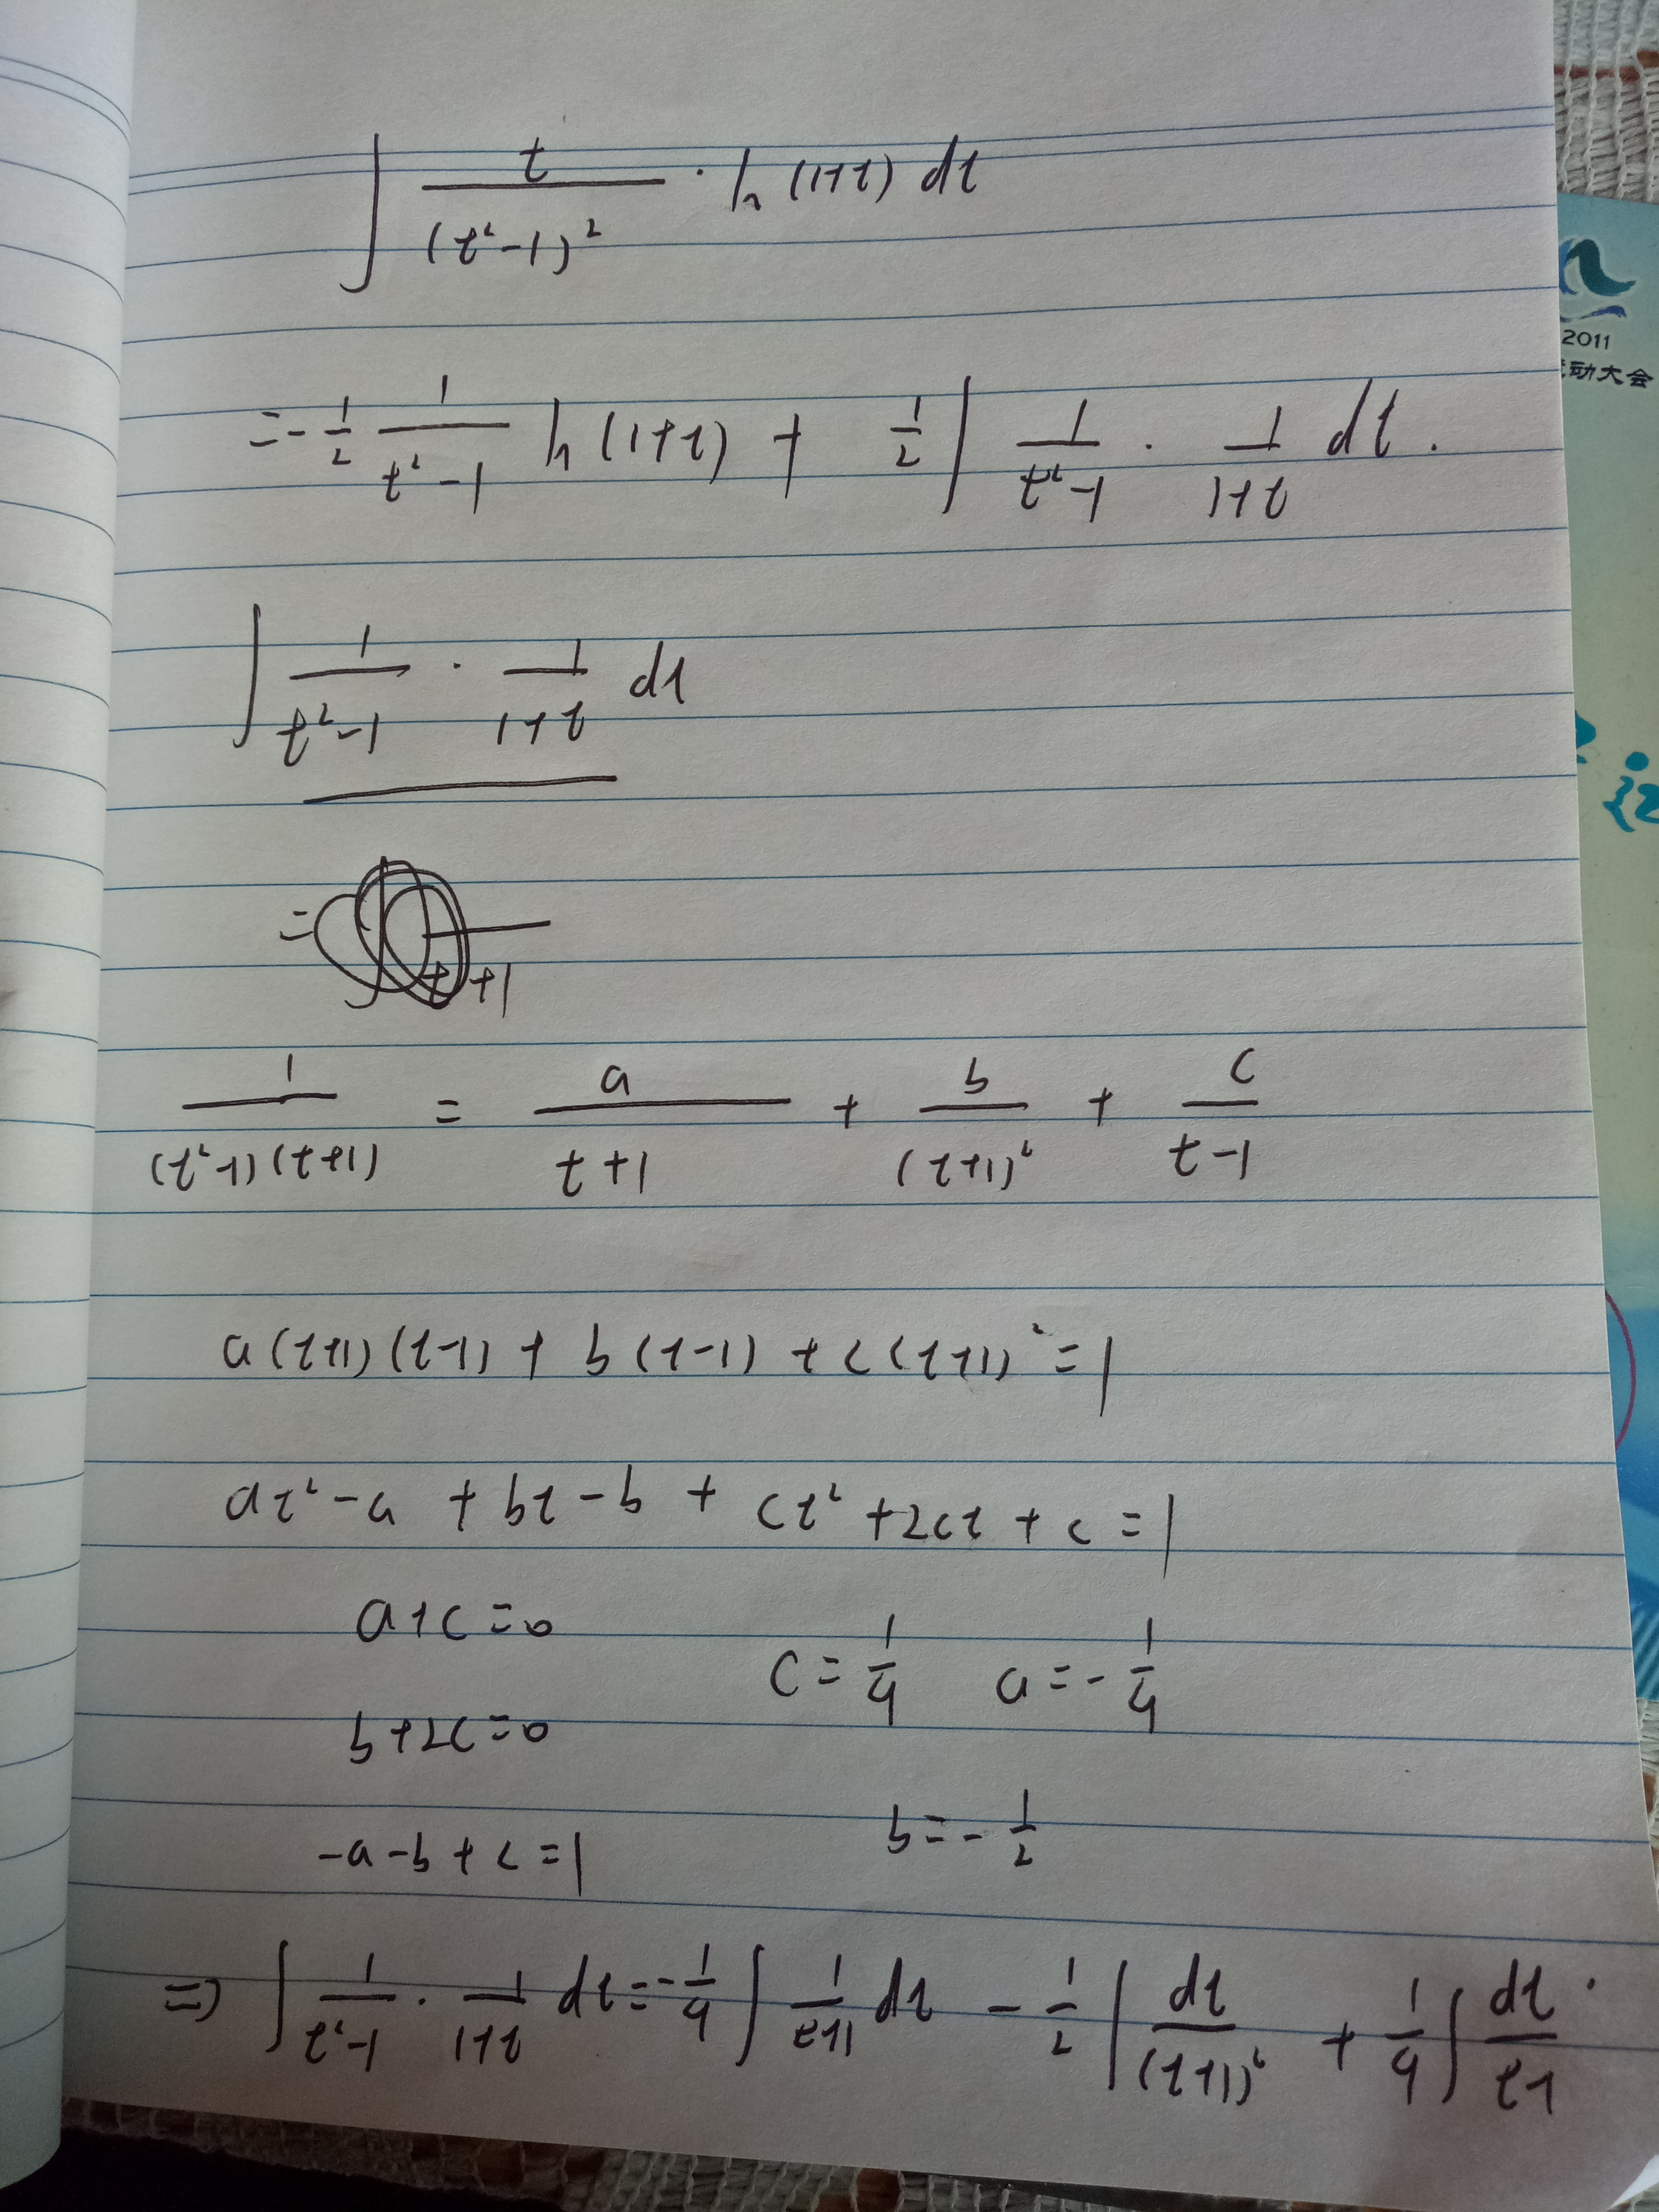 ∫ t/(t²-1)² · ln(1+t) dt
= -1/2 1/(t²-1) ln(1+t) + 1/2 ∫ 1/(t²-1) · 1/(1+t) dt.
∫ 1/(t²-1) · 1/(1+t) dt
=
t+1
1/((t²-1)(t+1)) = a/(t+1) + b/(t+1)² + c/(t-1)
a(t+1)(t-1) + b(t-1) + c(t+1)² = 1
at²-a + bt-b + ct²+2ct+c = 1
a+c=0
c=1/4 a=-1/4
b+2c=0
b=-1/2
-a-b+c=1
⇒ ∫ 1/(t²-1) · 1/(1+t) dt = -1/4 ∫ 1/(t+1) dt - 1/2 ∫ dt/(t+1)² + 1/4 ∫ dt/(t-1).
2011
动大会